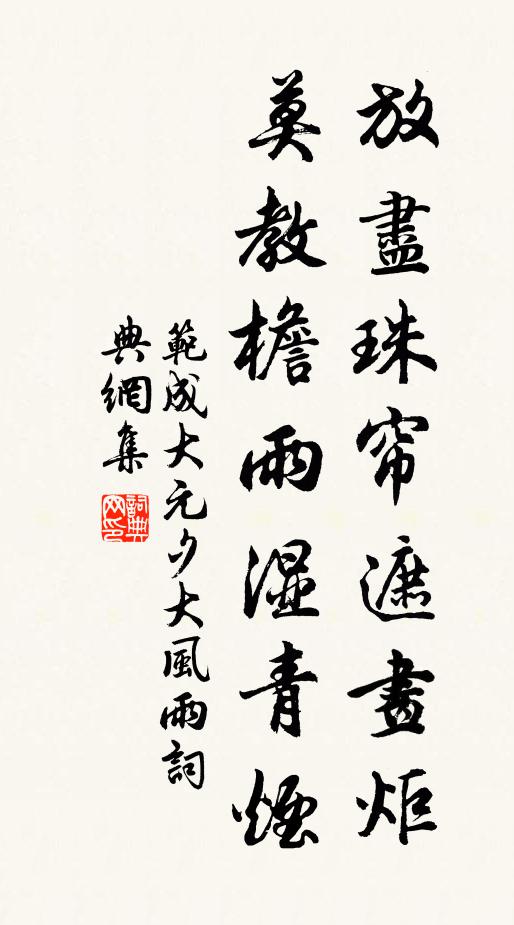 放盡珠帘遮畫炬
莫教檐雨湿青煙
範成大元夕大風雨詞
典網集
詞典網印